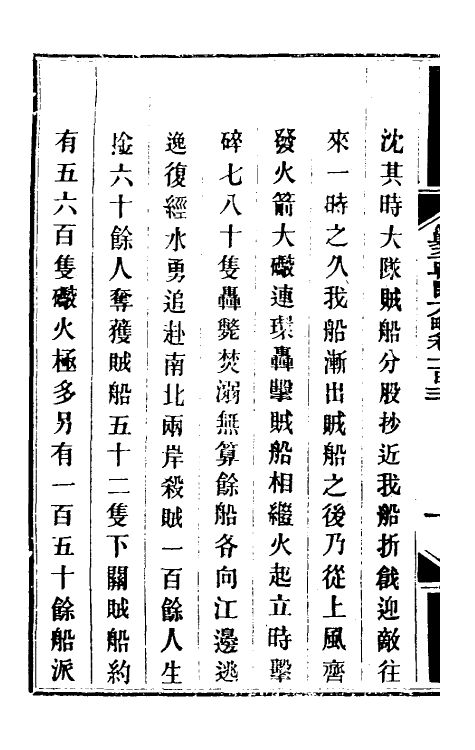 沈其時大隊賊船分股抄近我船折戧迎敵往
來一時之久我船漸出賊船之後乃從上風齊
發火箭大礮連環轟擊賊船相繼火起立時擊
碎七八十隻轟斃焚溺無算餘船各向江邊逃
逸復經水勇追赴南北兩岸殺賊一百餘人生
擒六十餘人奪獲賊船五十二隻下關賊船約
有五六百隻礮火極多另有一百五十餘船派